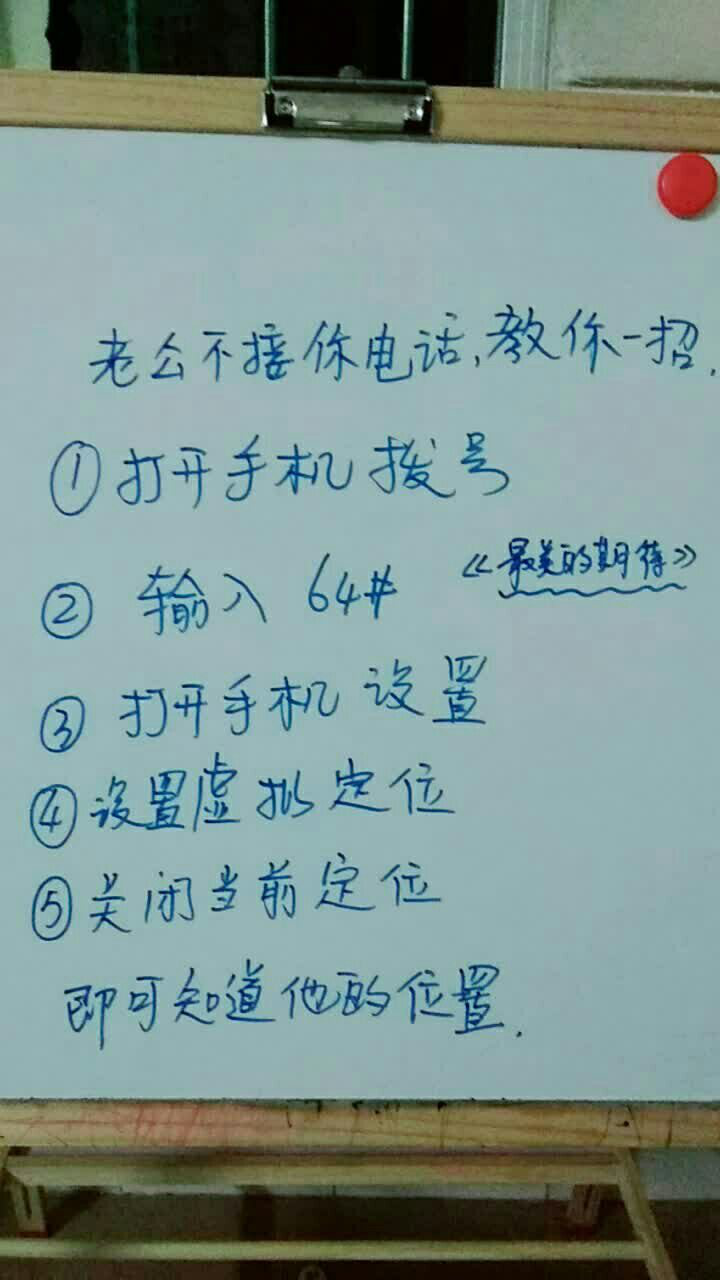 老公不接你电话,教你一招.
①打开手机拨号
②输入 64# 《最美的期待》
③打开手机设置
④设置虚拟定位
⑤关闭当前定位
即可知道他的位置.